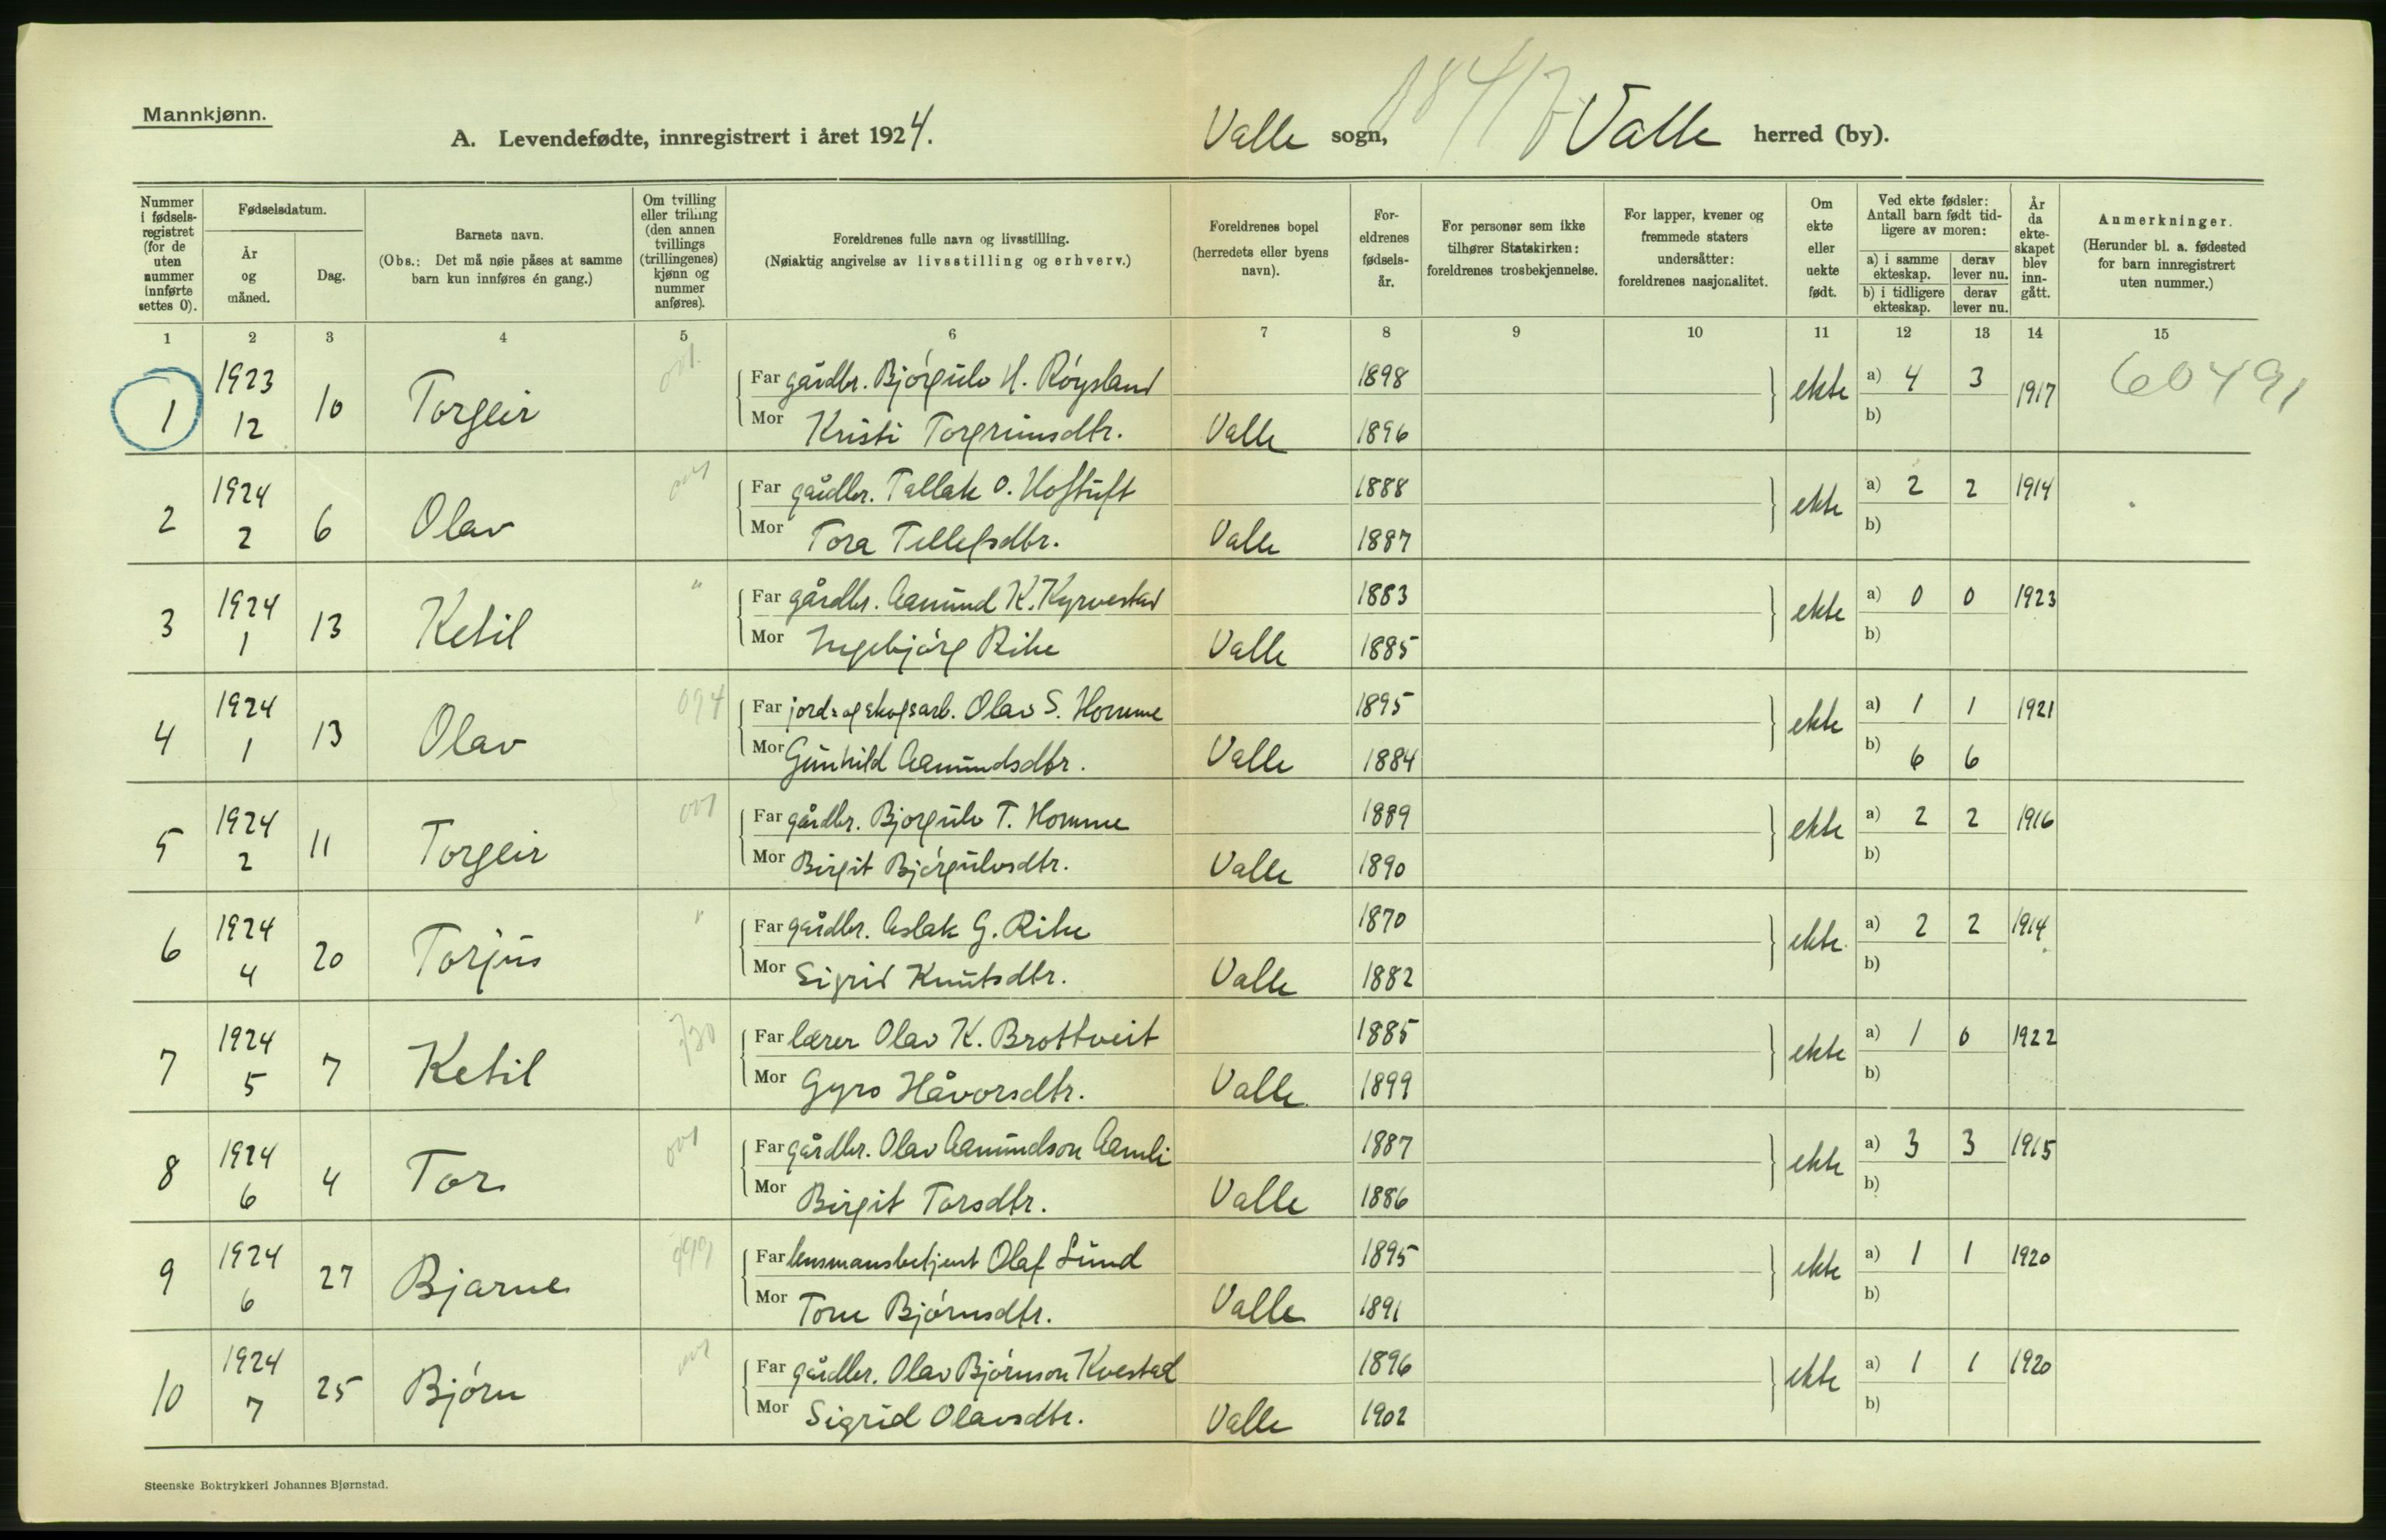 Mannkjønn.
A. Levendefødte, innregistrert i året 1924. Valle sogn, Valle herred (by).
Nummer i fødsels-registret (for de uten nummer innførte settes 0).
Fødselsdatum.
År og måned.
Dag.
Barnets navn.
(Obs.: Det må nøie påses at samme barn kun innføres én gang.)
Om tvilling eller trilling (den annen tvillings (trillingenes) kjønn og nummer anføres).
Foreldrenes fulle navn og livsstilling.
(Nøiaktig angivelse av livsstilling og erhverv.)
Foreldrenes bopel
(herredets eller byens navn).
For-eldrenes fødsels-år.
For personer som ikke tilhører Statskirken: foreldrenes trosbekjennelse.
For lapper, kvener og fremmede staters undersåtter: foreldrenes nasjonalitet.
Om ekte eller uekte født.
Ved ekte fødsler: Antall barn født tid-ligere av moren:
a) i samme ekteskap. derav lever nu.
b) i tidligere ekteskap. derav lever nu.
År da ekte-skapet blev inn-gått.
Anmerkninger.
(Herunder bl. a. fødested for barn innregistrert uten nummer.)
1 2 3 4 5 6 7 8 9 10 11 12 13 14 15
1 1923 12 10 Torgeir
Far gårdbr. Bjórgulv H. Róysland 1898 ekte a) 4 3 1917 60491
Mor Kristi Torgrimsdtr. Valle 1896 b)
2 1924 2 6 Olav
Far gårdbr. Tallak O. Hoftuft 1888 ekte a) 2 2 1914
Mor Tora Tellefsdtr. Valle 1887 b)
3 1924 1 13 Ketil "
Far gårdbr. Aamund K. Kyrvestad 1883 ekte a) 0 0 1923
Mor Ingebjórg Rike Valle 1885 b)
4 1924 1 13 Olav 094
Far jord- og skogsarb. Olav S. Homme 1895 ekte a) 1 1 1921
Mor Gunhild Aamundsdtr. Valle 1884 b) 6 6
5 1924 2 11 Torgeir
Far gårdbr. Bjorgulv T. Homme 1889 ekte a) 2 2 1916
Mor Birgit Bjórgulvsdtr. Valle 1890 b)
6 1924 4 20 Torjus
Far gårdbr. Aslak G. Rike 1870 ekte a) 2 2 1914
Mor Sigrid Knutsdtr. Valle 1882 b)
7 1924 5 7 Ketil
Far lærer Olav K. Brottveit 1885 ekte a) 1 0 1922
Mor Gyro Håvorsdtr. Valle 1899 b)
8 1924 6 4 Tor
Far gårdbr. Olav Aamundson Aamli 1887 ekte a) 3 3 1915
Mor Birgit Torsdtr. Valle 1886 b)
9 1924 6 27 Bjarne
Far lensmansbetjent Olaf Lund 1895 ekte a) 1 1 1920
Mor Tone Bjórnsdtr. Valle 1891 b)
10 1924 7 25 Bjórn
Far gårdbr. Olav Bjórnson Kvestad 1896 ekte a) 1 1 1920
Mor Sigrid Olavsdtr. Valle 1902 b)
Steenske Boktrykkeri Johannes Bjørnstad.